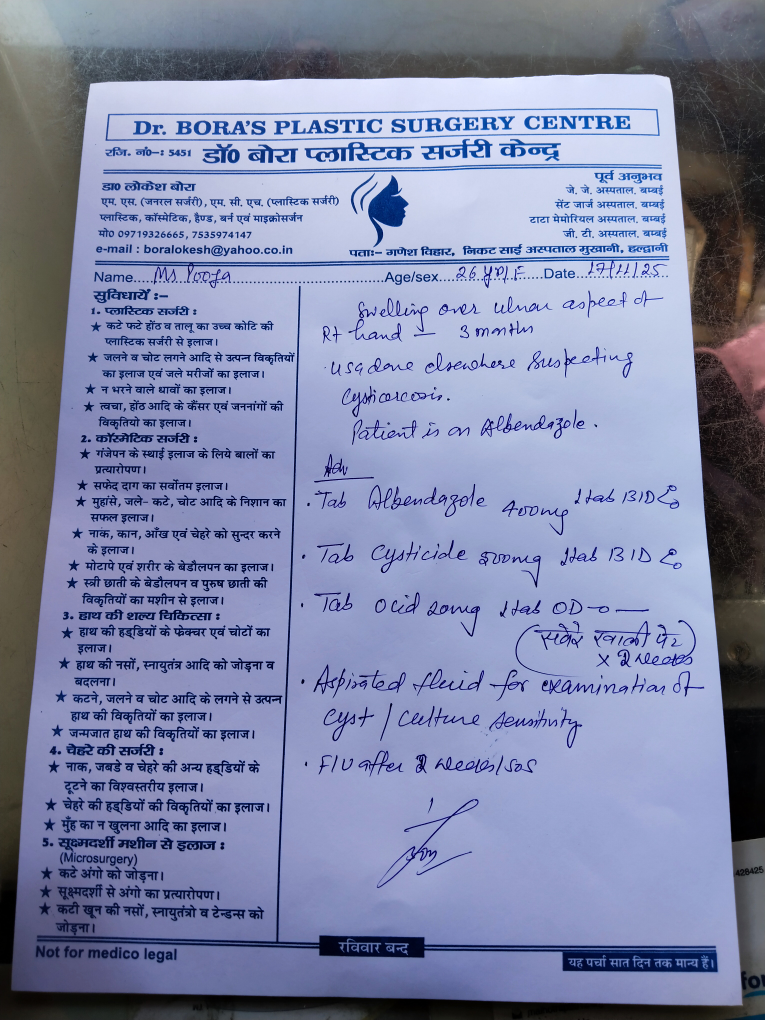 Dr. BORA'S PLASTIC SURGERY CENTRE
रजि. नं०-: 5451 डॉ० बोरा प्लास्टिक सर्जरी केन्द्र
डा० लोकेश बोरा
एम. एस. (जनरल सर्जरी), एम. सी. एच. (प्लास्टिक सर्जरी)
प्लास्टिक, कॉस्मेटिक, हैण्ड, बर्न एवं माइक्रोसर्जन
मो० 09719326665, 7535974147
e-mail : boralokesh@yahoo.co.in
पूर्व अनुभव
जे. जे. अस्पताल, बम्बई
सेंट जार्ज अस्पताल, बम्बई
टाटा मेमोरियल अस्पताल, बम्बई
जी. टी. अस्पताल, बम्बई
पताः- गणेश विहार, निकट साई अस्पताल मुखानी, हल्द्वानी
Name....Ms Pooja....Age/sex...26 yrs/F...Date..17/11/25
सुविधायें :-
1. प्लास्टिक सर्जरी :
★ कटे फटे होंठ व तालू का उच्च कोटि की
प्लास्टिक सर्जरी से इलाज।
★ जलने व चोट लगने आदि से उत्पन्न विकृतियों
का इलाज एवं जले मरीजों का इलाज।
★ न भरने वाले धावों का इलाज।
★ त्वचा, होंठ आदि के कैंसर एवं जननांगों की
विकृतियो का इलाज।
2. कॉस्मेटिक सर्जरी :
★ गंजेपन के स्थाई इलाज के लिये बालों का
प्रत्यारोपण।
★ सफेद दाग का सर्वोतम इलाज।
★ मुहांसे, जले- कटे, चोट आदि के निशान का
सफल इलाज।
★ नाक, कान, आँख एवं चेहरे को सुन्दर करने
के इलाज।
★ मोटापे एवं शरीर के बेडौलपन का इलाज।
★ स्त्री छाती के बेडौलपन व पुरुष छाती की
विकृतियों का मशीन से इलाज।
3. हाथ की शल्य चिकित्सा :
★ हाथ की हड्डियों के फ्रेक्चर एवं चोटों का
इलाज।
★ हाथ की नसों, स्नायुतंत्र आदि को जोड़ना व
बदलना।
★ कटने, जलने व चोट आदि के लगने से उत्पन्न
हाथ की विकृतियों का इलाज।
★ जन्मजात हाथ की विकृतियों का इलाज।
4. चेहरे की सर्जरी :
★ नाक, जबडे व चेहरे की अन्य हड्डियों के
टूटने का विश्वस्तरीय इलाज।
★ चेहरे की हड्डियों की विकृतियों का इलाज।
★ मुँह का न खुलना आदि का इलाज।
5. सूक्ष्मदर्शी मशीन से इलाज :
(Microsurgery)
★ कटे अंगो को जोड़ना।
★ सूक्ष्मदर्शी से अंगो का प्रत्यारोपण।
★ कटी खून की नसों, स्नायुतंत्रो व टेन्डन्स को
जोड़ना।
Swelling over ulnar aspect of
Rt hand – 3 months
· USG done elsewhere suspecting
Cysticercosis.
Patient is on Albendazole.
Adv
· Tab Albendazole 400mg 1tab BID
· Tab Cysticide 500mg 1tab BID
· Tab Ocid 20mg 1tab OD -o-
(सवेरे खाली पेट)
x 2 weeks
· Aspirated fluid for examination of
cyst / culture sensitivity
· F/U after 2 weeks/sos
Not for medico legal
रविवार बन्द
यह पर्चा सात दिन तक मान्य हैं।
428425